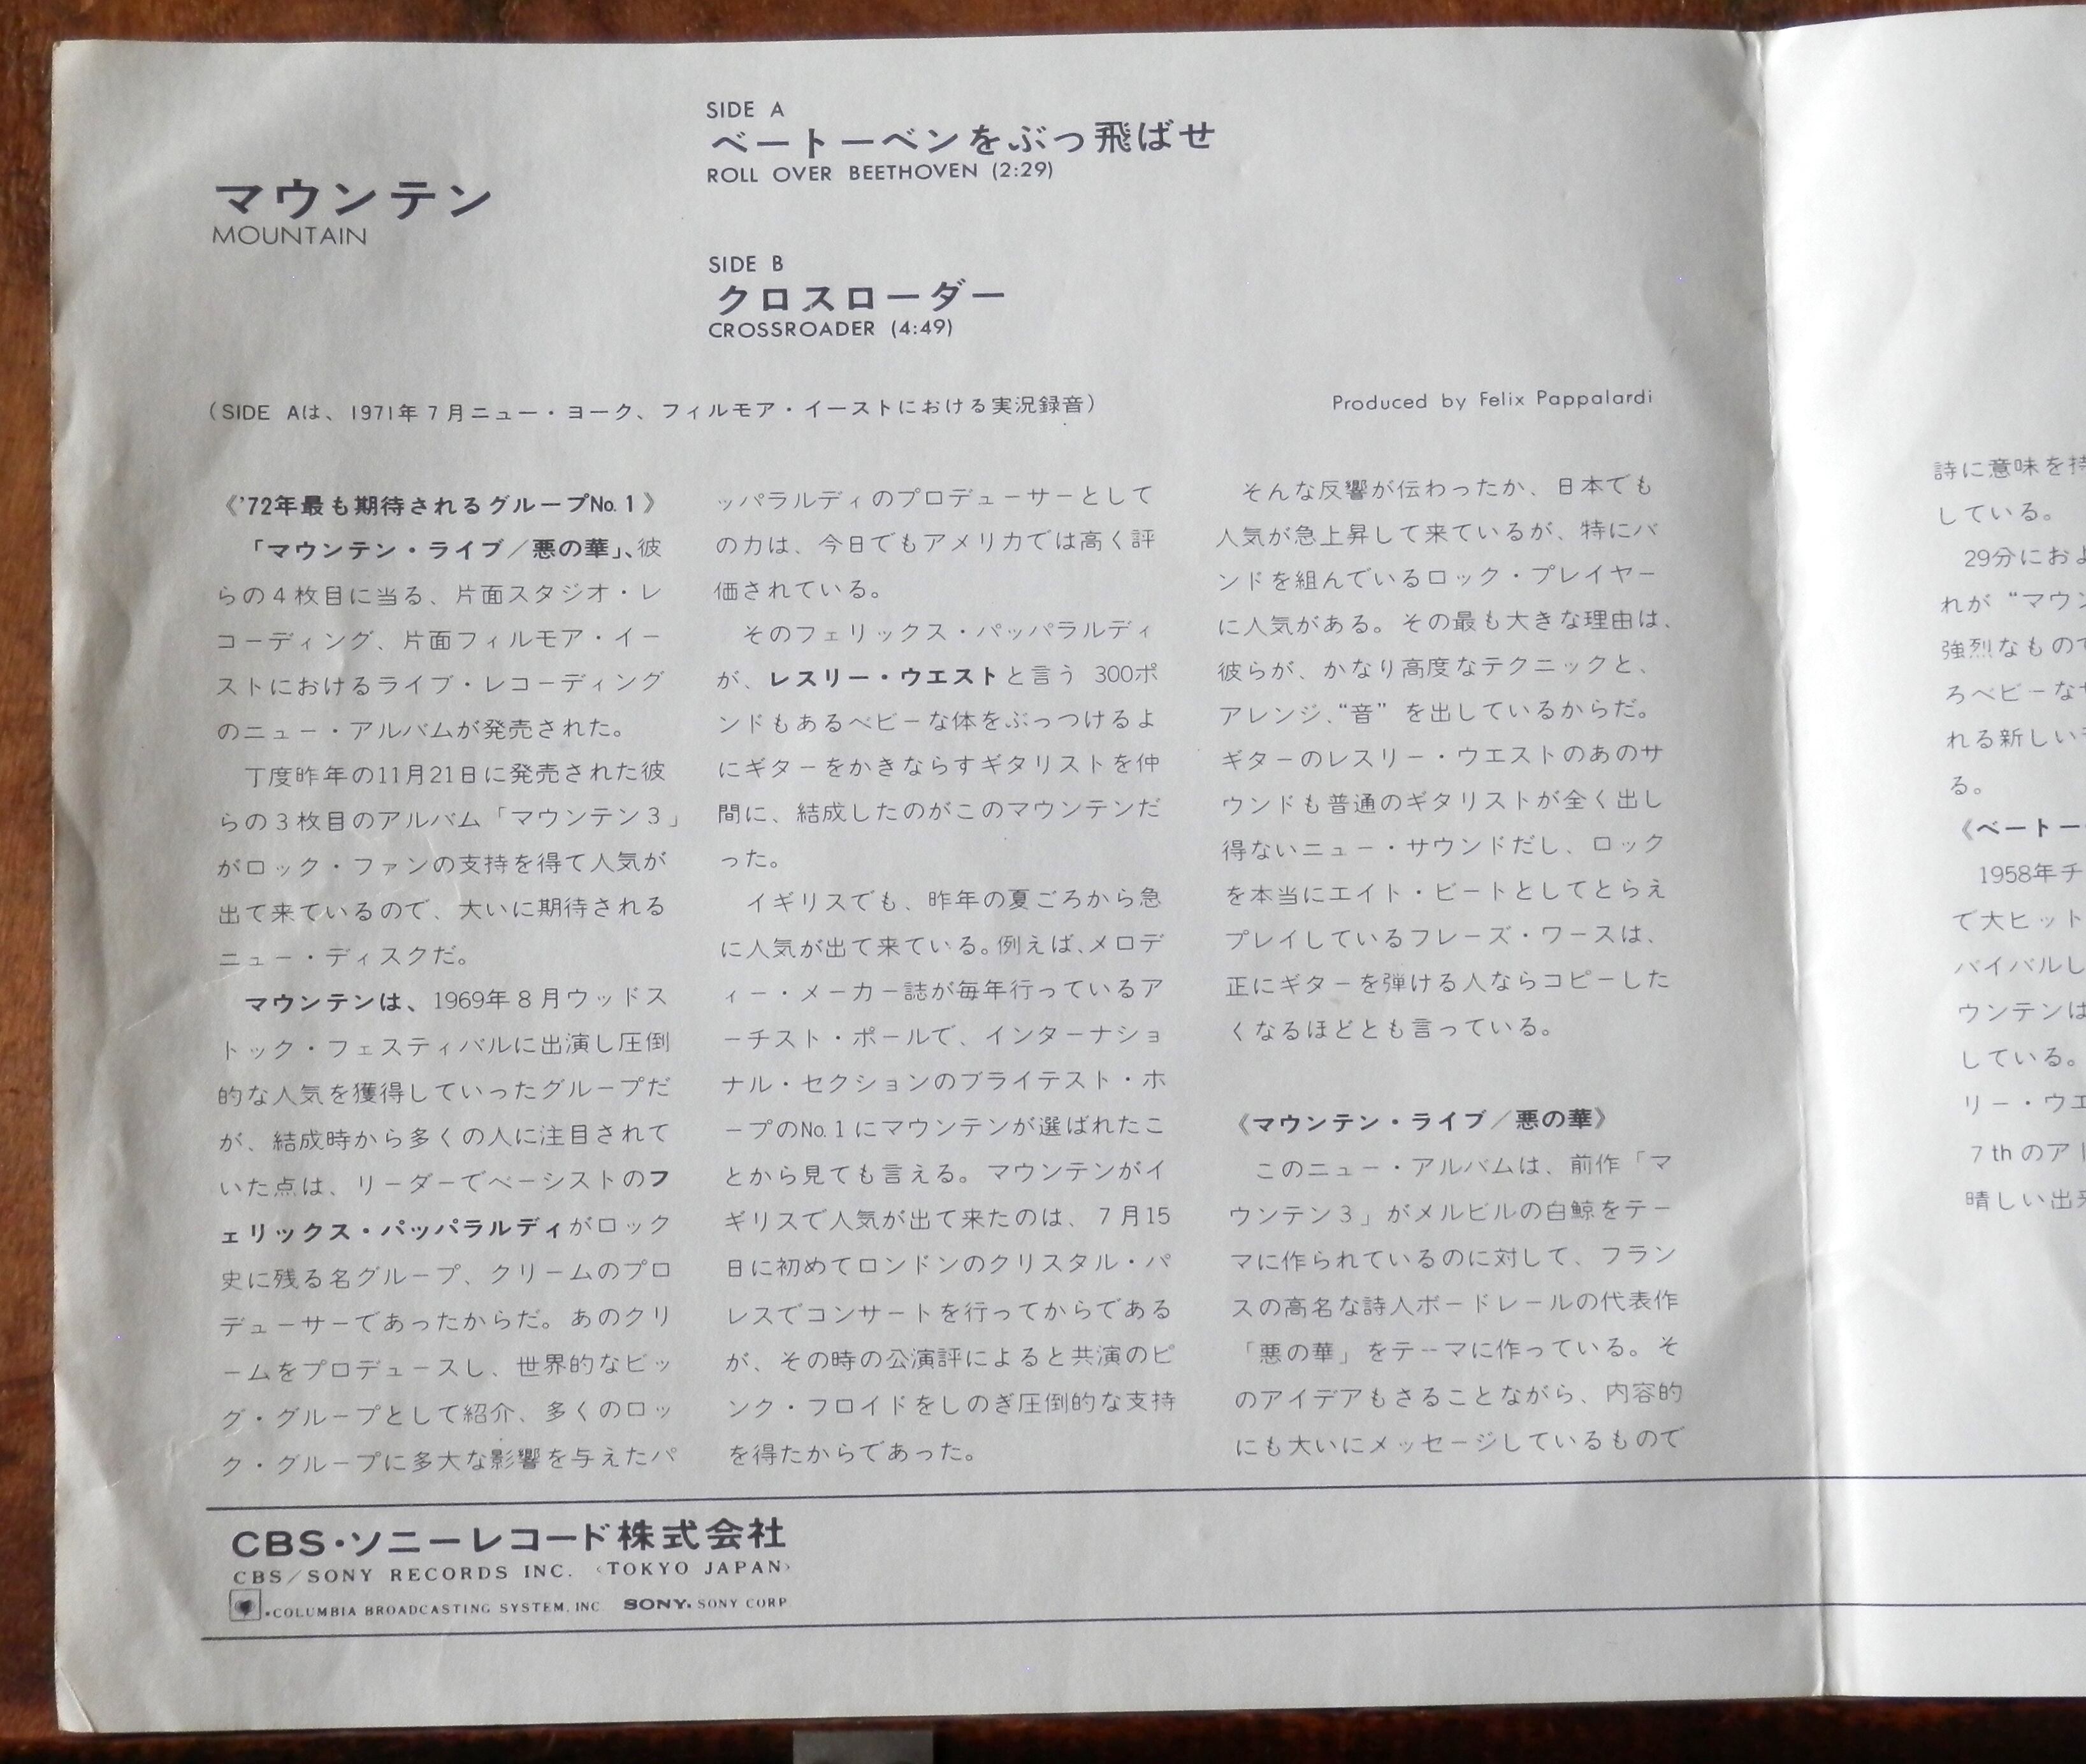 マウンテン
MOUNTAIN
SIDE A
ベートーベンをぶっ飛ばせ
ROLL OVER BEETHOVEN (2:29)
SIDE B
クロスローダー
CROSSROADER (4:49)
(SIDE Aは、1971年7月ニュー・ヨーク、フィルモア・イーストにおける実況録音)
Produced by Felix Pappalardi
《'72年最も期待されるグループNo.1》
「マウンテン・ライブ/悪の華」、彼
らの4枚目に当る、片面スタジオ・レ
コーディング、片面フィルモア・イー
ストにおけるライブ・レコーディング
のニュー・アルバムが発売された。
丁度昨年の11月21日に発売された彼
らの3枚目のアルバム「マウンテン3」
がロック・ファンの支持を得て人気が
出て来ているので、大いに期待される
ニュー・ディスクだ。
マウンテンは、1969年8月ウッドス
トック・フェスティバルに出演し圧倒
的な人気を獲得していったグループだ
が、結成時から多くの人に注目されて
いた点は、リーダーでベーシストのフ
ェリックス・パッパラルディがロック
史に残る名グループ、クリームのプロ
デューサーであったからだ。あのクリ
ームをプロデュースし、世界的なビッ
グ・グループとして紹介、多くのロッ
ク・グループに多大な影響を与えたパ
ッパラルディのプロデューサーとして
の力は、今日でもアメリカでは高く評
価されている。
そのフェリックス・パッパラルディ
が、レスリー・ウエストと言う 300ポ
ンドもあるベビーな体をぶっつけるよ
にギターをかきならすギタリストを仲
間に、結成したのがこのマウンテンだ
った。
イギリスでも、昨年の夏ごろから急
に人気が出て来ている。例えば、メロデ
ィー・メーカー誌が毎年行っているア
ーチスト・ポールで、インターナショ
ナル・セクションのブライテスト・ホ
ープのNo.1にマウンテンが選ばれたこ
とから見ても言える。マウンテンがイ
ギリスで人気が出て来たのは、7月15
日に初めてロンドンのクリスタル・パ
レスでコンサートを行ってからである
が、その時の公演評によると共演のピ
ンク・フロイドをしのぎ圧倒的な支持
を得たからであった。
そんな反響が伝わったか、日本でも
人気が急上昇して来ているが、特にバ
ンドを組んでいるロック・プレイヤー
に人気がある。その最も大きな理由は、
彼らが、かなり高度なテクニックと、
アレンジ、“音” を出しているからだ。
ギターのレスリー・ウエストのあのサ
ウンドも普通のギタリストが全く出し
得ないニュー・サウンドだし、ロック
を本当にエイト・ビートとしてとらえ
プレイしているフレーズ・ワースは、
正にギターを弾ける人ならコピーした
くなるほどとも言っている。
《マウンテン・ライブ/悪の華》
このニュー・アルバムは、前作「マ
ウンテン3」がメルビルの白鯨をテー
マに作られているのに対して、フラン
スの高名な詩人ボードレールの代表作
「悪の華」をテーマに作っている。そ
のアイデアもさることながら、内容的
にも大いにメッセージしているもので
詩に意味を持
している。
29分におよ
れが “マウン
強烈なもので
ろベビーなサ
れる新しい
る。
《ベートー
1958年チ
で大ヒット
バイバルし
ウンテンは
している。
リー・ウエ
7thのアト
晴しい出来
CBS・ソニーレコード株式会社
CBS/SONY RECORDS INC. <TOKYO JAPAN>
•COLUMBIA BROADCASTING SYSTEM, INC SONY. SONY CORP